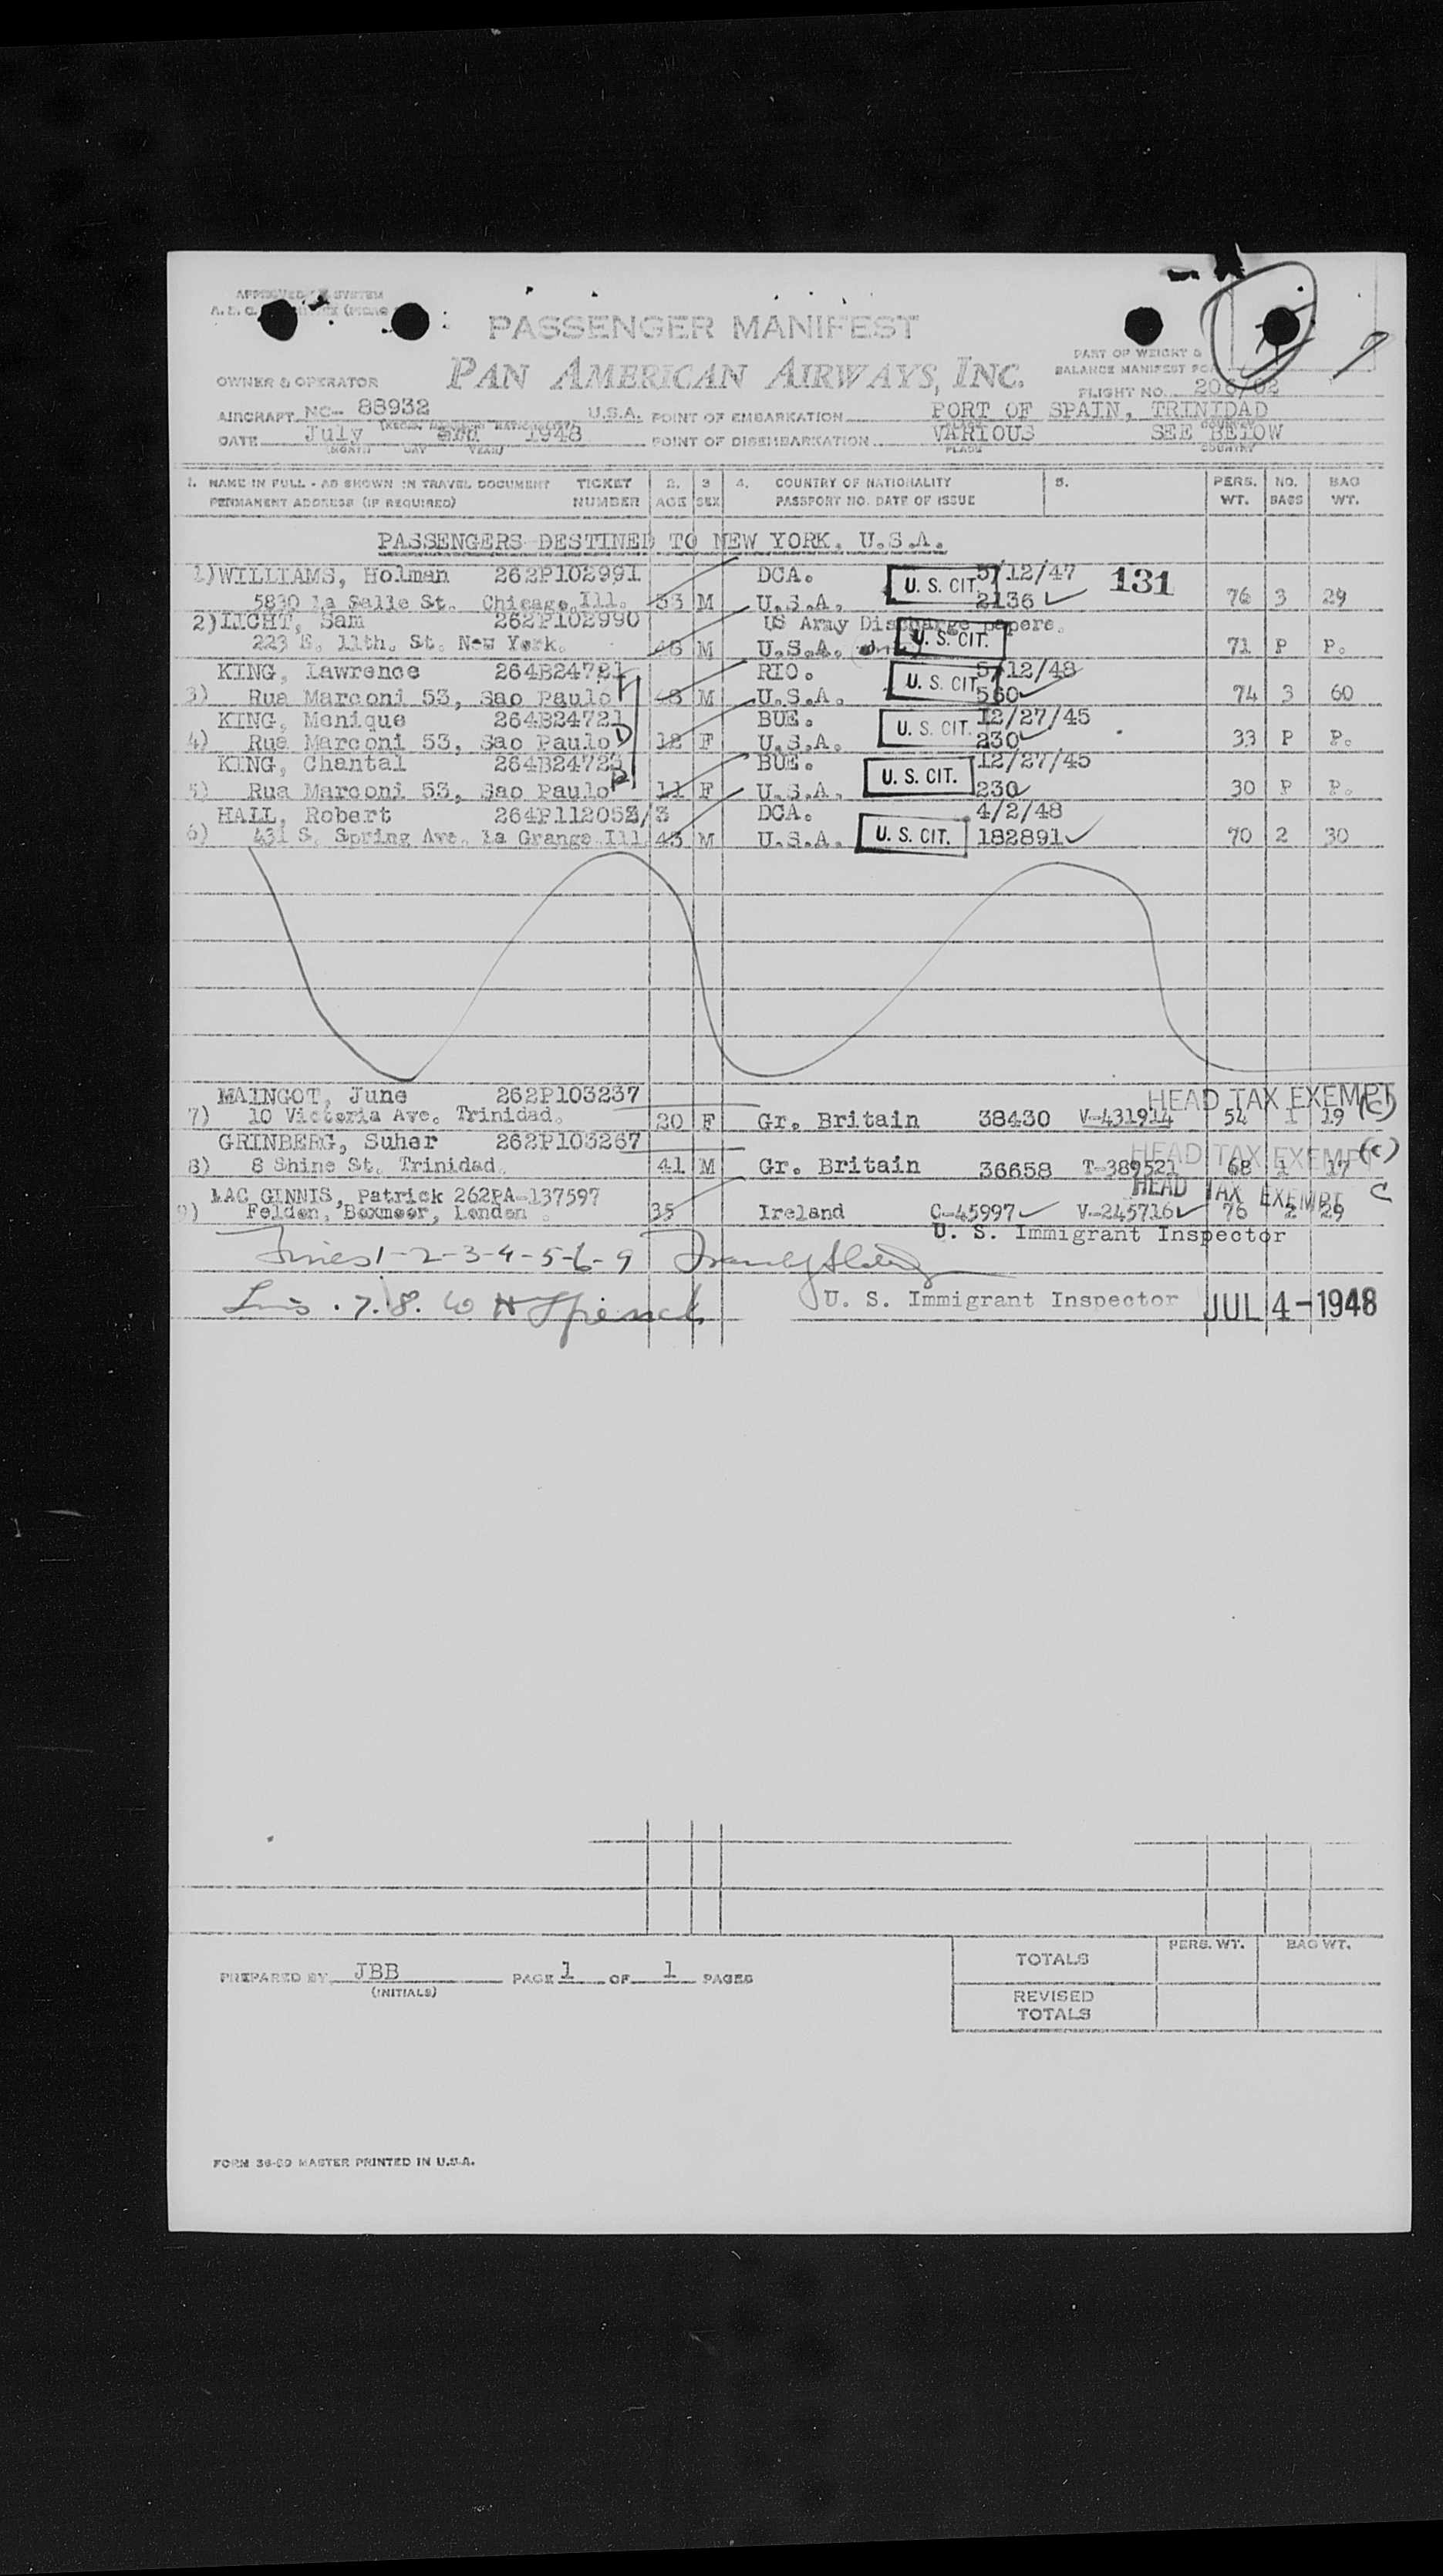 APPROVED SYSTEM
PASSENGER MANIFEST
PAN AMERICAN AIRWAYS, INC.
PART OF WEIGHT &
BALANCE MANIFEST FOR
OWNER & OPERATOR
FLIGHT NO. 206/02
AIRCRAFT NC- 88932 U.S.A. POINT OF EMBARKATION PORT OF SPAIN, TRINIDAD
DATE July 1948 POINT OF DISEMBARKATION VARIOUS SEE BELOW
(MONTH) DAY YEAR) PLACE COUNTRY
1. NAME IN FULL - AS SHOWN IN TRAVEL DOCUMENT TICKET 2. 3 4. COUNTRY OF NATIONALITY 5. PERS. NO. BAG
PERMANENT ADDRESS (IF REQUIRED) NUMBER AGE SEX PASSPORT NO. DATE OF ISSUE WT. BAGS WT.
PASSENGERS DESTINED TO NEW YORK. U.S.A.
1) WILLIAMS, Holman 262P102991 DCA. U. S. CIT. 5/12/47 131
5830 La Salle St. Chicago Ill. 53 M U.S.A. 2136 76 3 29
2) LICHT, Sam 262P102990 US Army Discharge papers.
223 E. 11th. St. New York. M U.S.A. U. S. CIT. 71 P P.
KING, Lawrence 264B24721 RIO. U. S. CIT. 5/12/48
3) Rua Marconi 53, Sao Paulo M U.S.A. 560 74 3 60
KING, Monique 264B24721 BUE. U. S. CIT. 12/27/45
4) Rua Marconi 53, Sao Paulo 12 F U.S.A. 230 33 P P.
KING, Chantal 264B24723 BUE. U. S. CIT. 12/27/45
5) Rua Marconi 53, Sao Paulo 11 F U.S.A. 230 30 P P.
HALL, Robert 264P112052/3 DCA. 4/2/48
6) 431 S. Spring Ave. La Grange Ill 43 M U.S.A. U. S. CIT. 182891 70 2 30
MAINGOT, June 262P103237 HEAD TAX EXEMPT (C)
7) 10 Victoria Ave. Trinidad. 20 F Gr. Britain 38430 V-431914 54 1 19
GRINBERG, Suher 262P103267 HEAD TAX EXEMPT (C)
8) 8 Shine St. Trinidad. 41 M Gr. Britain 36658 T-389521 68 1 17
MAC GINNIS, Patrick 262PA-137597 HEAD TAX EXEMPT C
9) Felden, Boxmoor, London. 35 Ireland C-45997 V-245716 76 2 29
U. S. Immigrant Inspector
Lines 1-2-3-4-5-6-9
7. 8.
U. S. Immigrant Inspector JUL 4-1948
PREPARED BY JBB PAGE 1 OF 1 PAGES
(INITIALS)
TOTALS PERS. WT. BAG WT.
REVISED
TOTALS
FORM 36-50 MASTER PRINTED IN U.S.A.